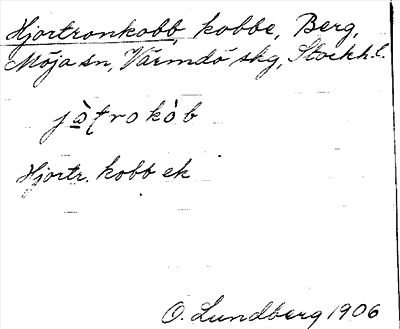 Hjortronkobb, kobbe, Berg,
Möja sn, Värmdö skg, Stockh.l.
jò̱ƭrokòb
Hjortr. kobb ek
O. Lundberg 1906